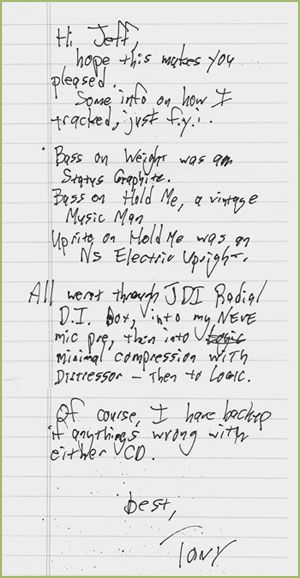 Hi Jeff,
hope this makes you
pleased.
Some info on how I
tracked, just f.y.i.
Bass on Weight was an
Status Graphite.
Bass on Hold Me, a vintage
Music Man
Uprite on Hold Me was an
NS Electric Upright.
All went through JDI Radial
D.I. box, into my NEVE
mic pre, then into Logic
minimal compression with
Distressor – then to Logic.
Of course, I have backup
if anythings wrong with
either CD.
best,
Tony